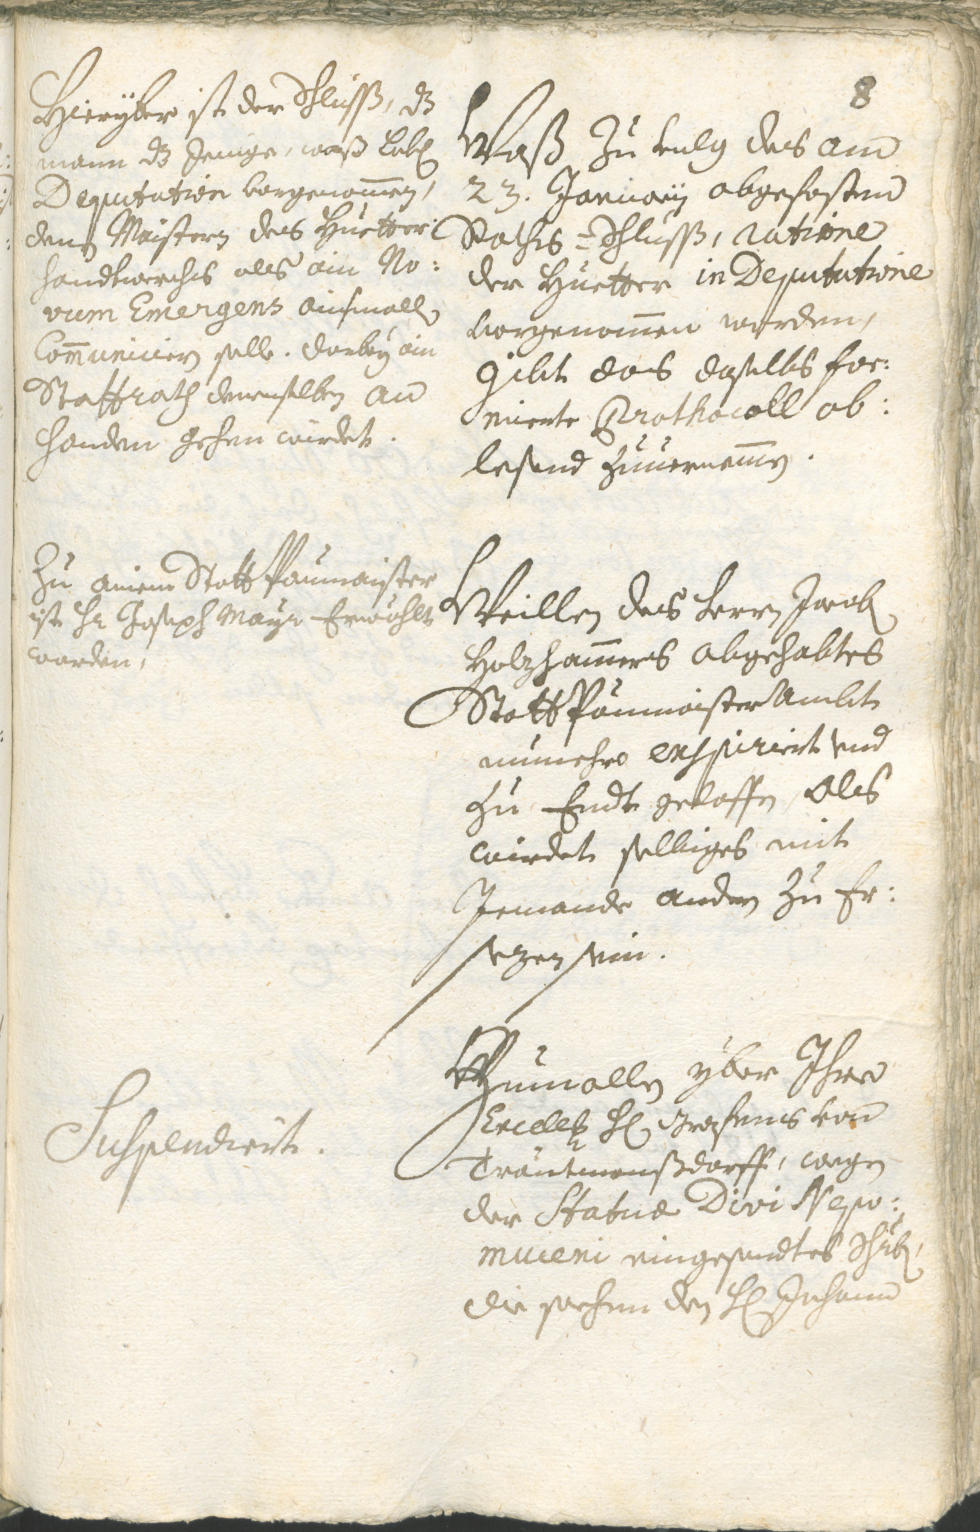 8
Hieryber ist der Schluss, dz
mann dz Jenige, wass Lobl
Deputation vorgenommen,
denen Maistern des Huetter
handtwerchs als ain No:
vum Emergens ainsmalls
Communiciern solle. darbey ain
Stattrath denenselben an
handen gehen wirdet.
Wass zu folg des am
23. January abgefasten
Raths-Schluss, ratione
der Huetter in Deputatione
vorgenommen worden,
gibt das daselbs for:
mierte Prothocoll ab:
lesend zuvernemmen.
Zu ainem Statt Paumaister
ist Hr Joseph Mayr Erwöhlt
worden,
Weillen des herrn Jacob
Holzhammers abgehabtes
Statt Paumaister Ambt
nunmehro exspiriert und
zu Endt geloffen, Als
wirdet selbiges mit
Jemande andern zu Er:
sezen sein.
Suspendiert.
Zumallen yber Ihro
Excell: H: Grafens von
Trautmanssdorff, wegen
der Statuæ Divi Nepo:
muceni eingesendtes Schrb,
die sachen den H: Johann